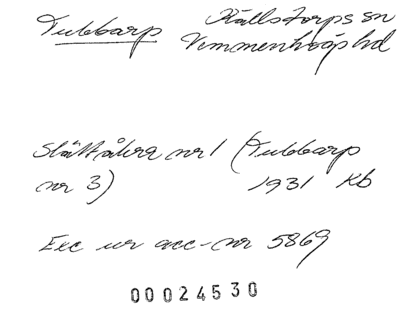 Tubbarp Källstorps sn
Vemmenhögs hd
Slättåkra nr 1 (Tubbarp
nr 3) 1931 Kb
Exc ur acc-nr 5869
00024530